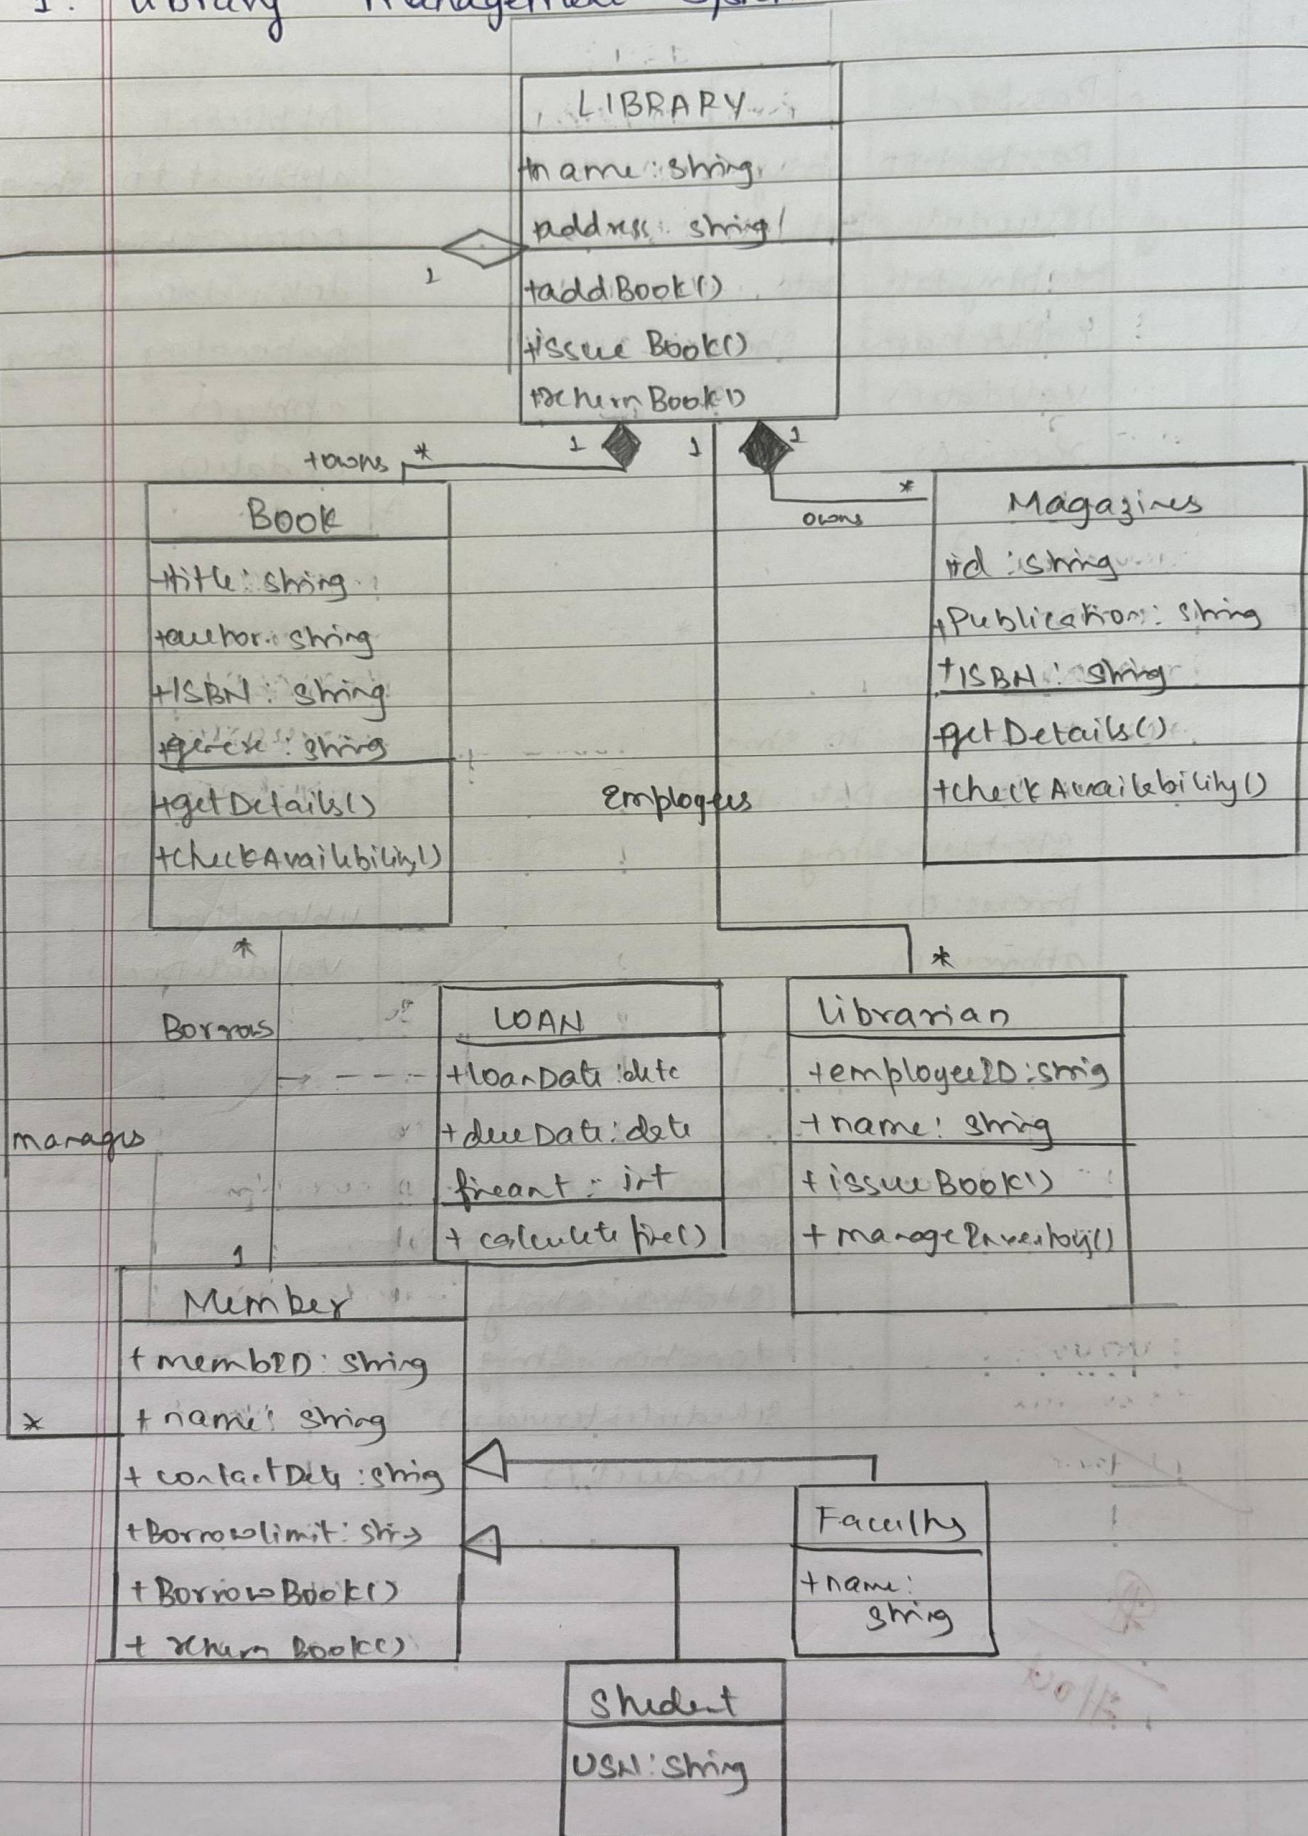 1. Library Management System
LIBRARY
+name: string
address: string
+addBook()
+issue Book()
+return Book()
1
1
1
1
+owns
*
owns
*
Book
+title: string
+author: string
+ISBN: string
+genre: string
+getDetails()
+checkAvailability()
Magazines
+id: string
+Publication: string
+ISBN: string
+getDetails()
+check Availability()
Employees
*
*
Borrows
LOAN
+loanDate: date
+dueDate: date
fineant: int
+ calculate fine()
Librarian
+employeeID: string
+name: string
+issueBook()
+ manageInventory()
manages
1
*
Member
+membID: string
+name: string
+contactDets: string
+Borrowlimit: string
+BorrowBook()
+ return Book()
Faculty
+name:
string
Student
USN: String